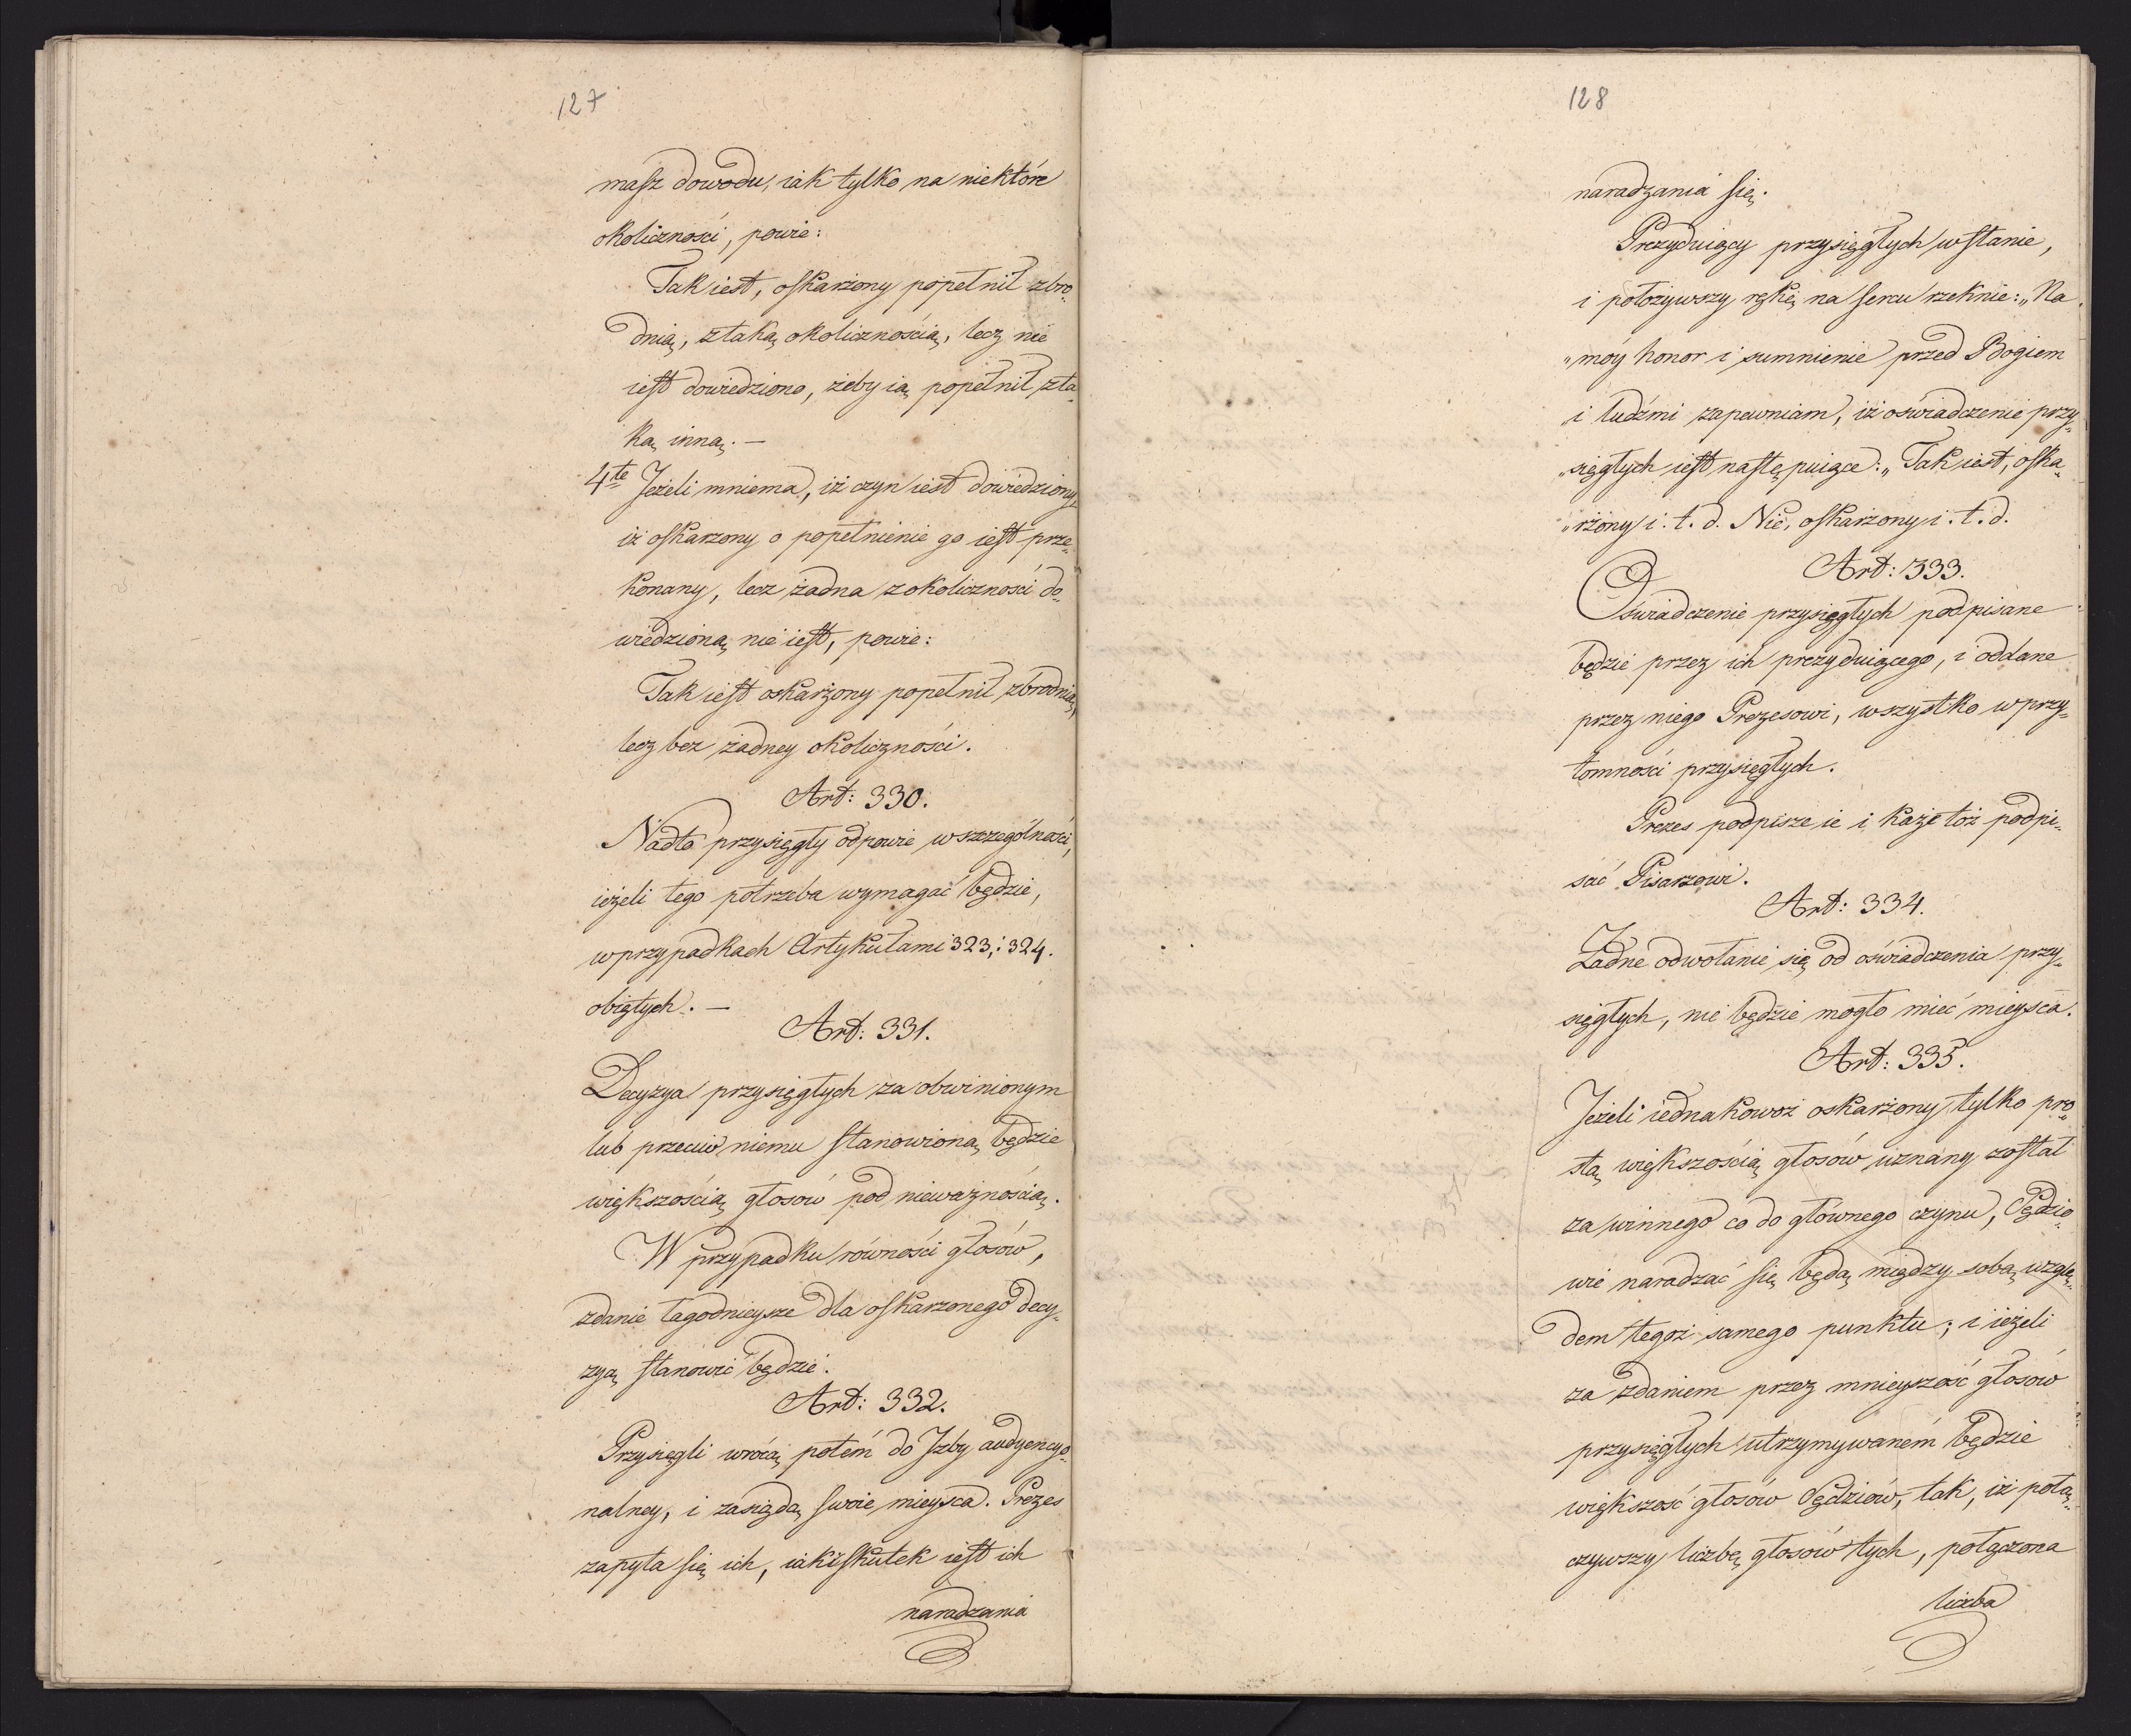 127
masz dowodu, iak tylko na niektóre
okoliczności, powie:
Tak iest, oskarżony popełnił zbro„
dnią, ztaką okolicznością, lecz nie
iest dowiedziono, żeby ią popełnił zta„
ką inną. —
4te Jeżeli mniema, iż czyn iest dowiedziony,
iż oskarzony o popełnienie go iest prze„
konany, lecz żadna z okoliczności do„
wiedzioną nie iest, powie:
Tak iest oskarżony popełnił zbrodnią,
lecz bez żadney okoliczności.
Art: 330.
Nadto przysięgły odpowie w szczególności,
ieżeli tego potrzeba wymagać będzie,
w przypadkach Artykułami 323, i 324.
obiętych. —
Art: 331.
Decyzya przysięgłych za obwinionym
lub przeciw niemu stanowioną będzie
większością głosów pod nieważnością.
W przypadku równości głosów,
zdanie łagodnieysze dla oskarzonego decy„
zyą stanowić będzie.
Art: 332.
Przysięgli wrócą potém do Izby audyencyo„
nalney, i zasiędą swoie mieysca. Prezes
zapyta się ich, iakiskutek iest ich
naradzania
128
naradzania się.
Prezyduiący przysięgłych wstanie,
i położywszy rękę na sercu rzeknie: „Na
„móy honor i sumnienie przed Bogiem
„i ludźmi zapewniam, iż oświadczenie przy„
„sięgłych iest następuiące: „Tak iest, oska„
„rżony i. t. d. Nie, oskarżony i. t. d.
Art: 333.
Oświadczenie przysięgłych podpisane
będzie przez ich prezyduiącego, i oddane
przez niego Prezesowi, wszystko w przy„
tomności przysięgłych.
Prezes podpisze ie i każe toż podpi„
sać Pisarzowi.
Art: 334.
Żadne odwołanie się od oświadczenia przy„
sięgłych, nie będzie mogło mieć mieysca.
Art: 335.
Jeżeli iednakowoż oskarżony tylko pro„
stą większością głosów uznany został
za winnego co do głównego czynu, Sędzio„
wie naradzać się będą między sobą wzglę„
dem tegoż samego punktu; i ieżeli
za zdaniem przez mnieyszość głosów
przysięgłych utrzymywaném będzie
większość głosów Sędziów, tak, iż połą„
czywszy liczbę głosów tych, połączona
liczba